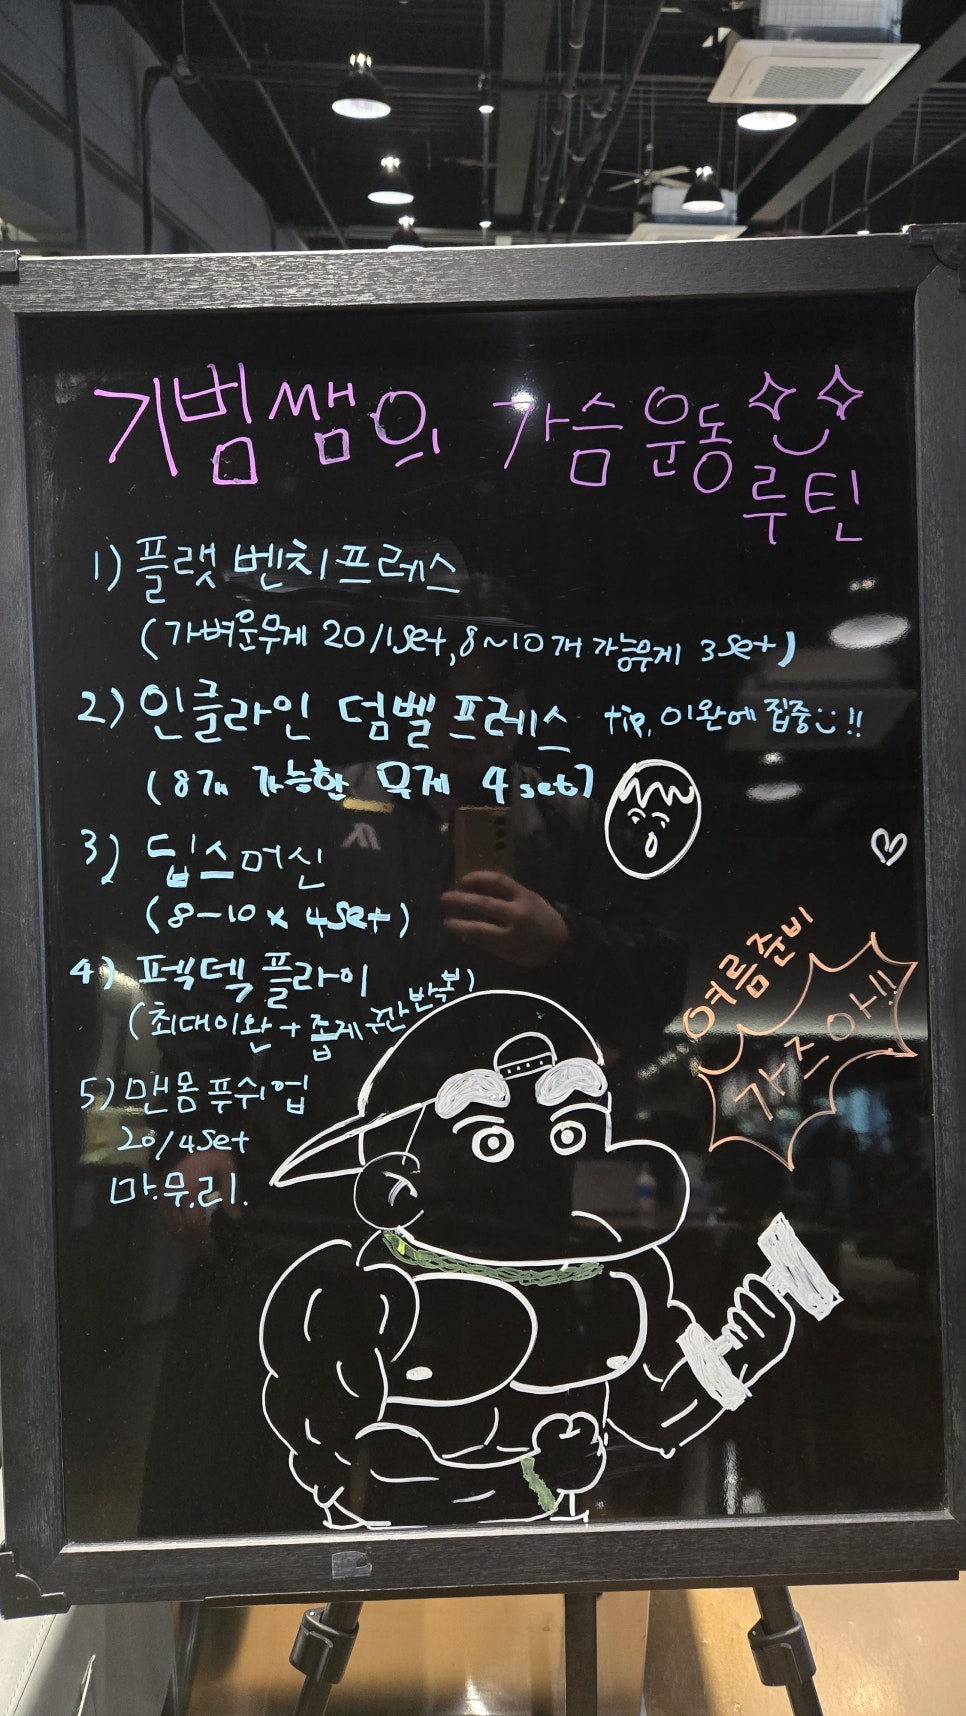 기범쌤의 가슴 운동
루틴
1) 플랫 벤치프레스
(가벼운무게 20/1set, 8~10개 가능무게 3set)
2) 인클라인 덤벨 프레스 tip, 이완에 집중!!
(8개 가능한 무게 4set)
3) 딥스머신
(8-10 x 4set)
4) 펙덱 플라이
(최대이완 + 쥽제구간 반복)
5) 맨몸 푸쉬업
20/4set
마.무.리.
여름준비
가즈아!!